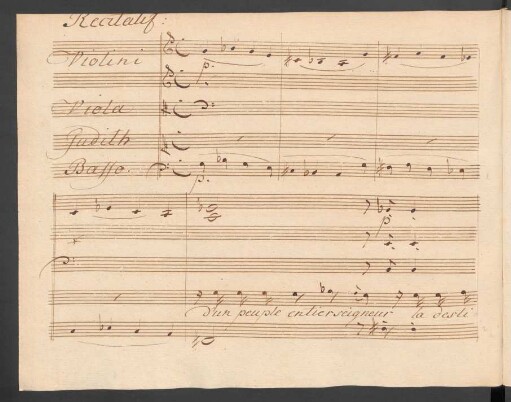 Recitatif:
Violini
p.
Viola
Judith
Basso.
p.
p.
d'un peuple entier seigneur la desti